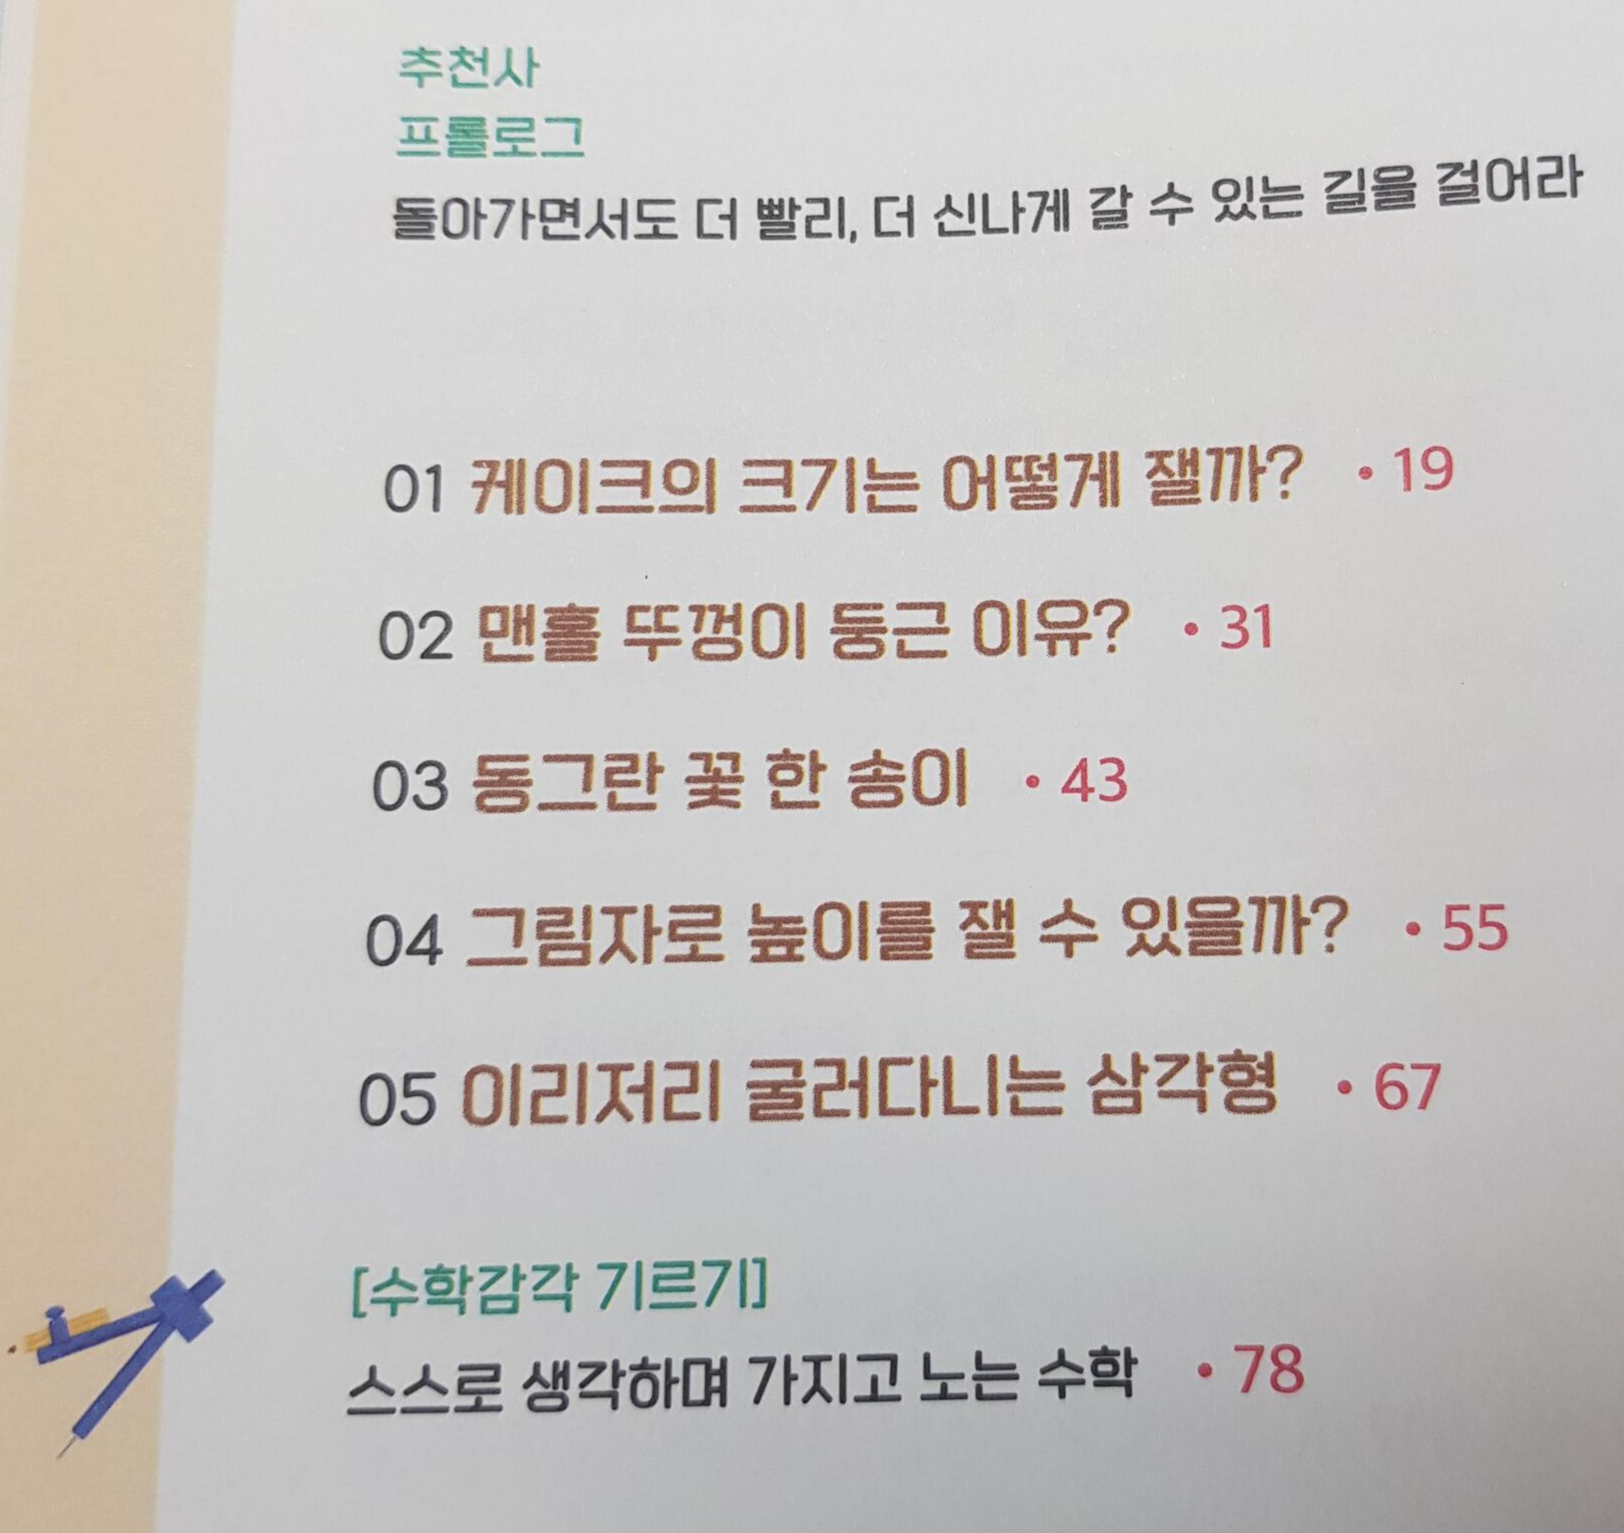 추천사
프롤로그
돌아가면서도 더 빨리, 더 신나게 갈 수 있는 길을 걸어라
01 케이크의 크기는 어떻게 잴까? • 19
02 맨홀 뚜껑이 둥근 이유? • 31
03 동그란 꽃 한 송이 • 43
04 그림자로 높이를 잴 수 있을까? • 55
05 이리저리 굴러다니는 삼각형 • 67
[수학감각 기르기]
스스로 생각하며 가지고 노는 수학 • 78